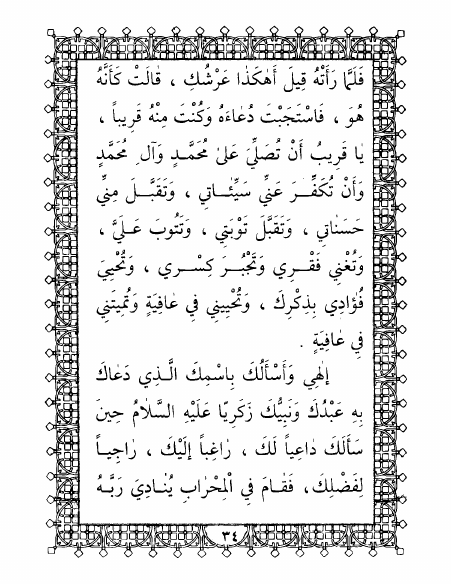 فَلَمَّا رَأَتْهُ قِيلَ أَهٰكَذٰا عَرْشُكِ ، قٰالَتْ كَأَنَّهُ
هُوَ ، فَاسْتَجَبْتَ دُعٰاءَهُ وَكُنْتَ مِنْهُ قَرِيباً ،
يٰا قَرِيبُ أَنْ تُصَلِّيَ عَلىٰ مُحَمَّدٍ وَآلِ مُحَمَّدٍ
وَأَنْ تُكَفِّرَ عَنِّي سَيِّئٰاتِي ، وَتَقَبَّلَ مِنِّي
حَسَنٰاتِي ، وَتَقَبَّلَ تَوْبَتِي ، وَتَتُوبَ عَلَيَّ ،
وَتُغْنِي فَقْرِي وَتَجْبُرَ كِسْرِي ، وَتُحْيِيَ
فُؤٰادِي بِذِكْرِكَ ، وَتُحْيِينِي فِي عٰافِيَةٍ وَتُمِيتَنِي
فِي عٰافِيَةٍ .
إِلٰهِي وَأَسْأَلُكَ بِاسْمِكَ الَّذِي دَعٰاكَ
بِهِ عَبْدُكَ وَنَبِيُّكَ زَكَرِيّٰا عَلَيْهِ السَّلٰامُ حِينَ
سَأَلَكَ دٰاعِياً لَكَ ، رٰاغِباً إِلَيْكَ ، رٰاجِياً
لِفَضْلِكَ ، فَقٰامَ فِي الْمِحْرٰابِ يُنٰادِيَ رَبَّهُ
٣٤